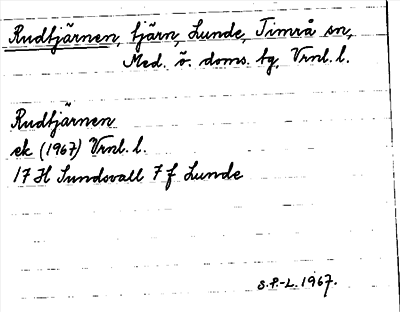 Rudtjärnen, tjärn, Lunde, Timrå sn,
Med. ö. doms. tg, Vrnl. l.
Rudtjärnen
ek (1967) Vrnl. l.
17 H Sundsvall 7 f Lunde
S.P.-L. 1967.